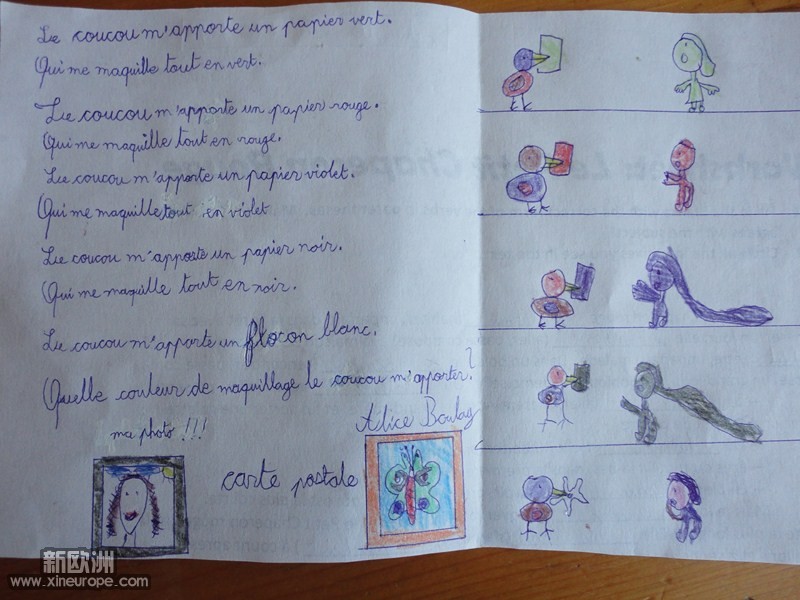 Le coucou m'apporte un papier vert.
Qui me maquille tout en vert.
Le coucou m'apporte un papier rouge.
Qui me maquille tout en rouge.
Le coucou m'apporte un papier violet.
Qui me maquille tout en violet
Le coucou m'apporte un papier noir.
Qui me maquille tout en noir.
Le coucou m'apporte un flocon blanc.
Quelle couleur de maquillage le coucou m'apporter?
Alice Boulay
ma photo !!!
carte postale
新欧洲
www.xineurope.com